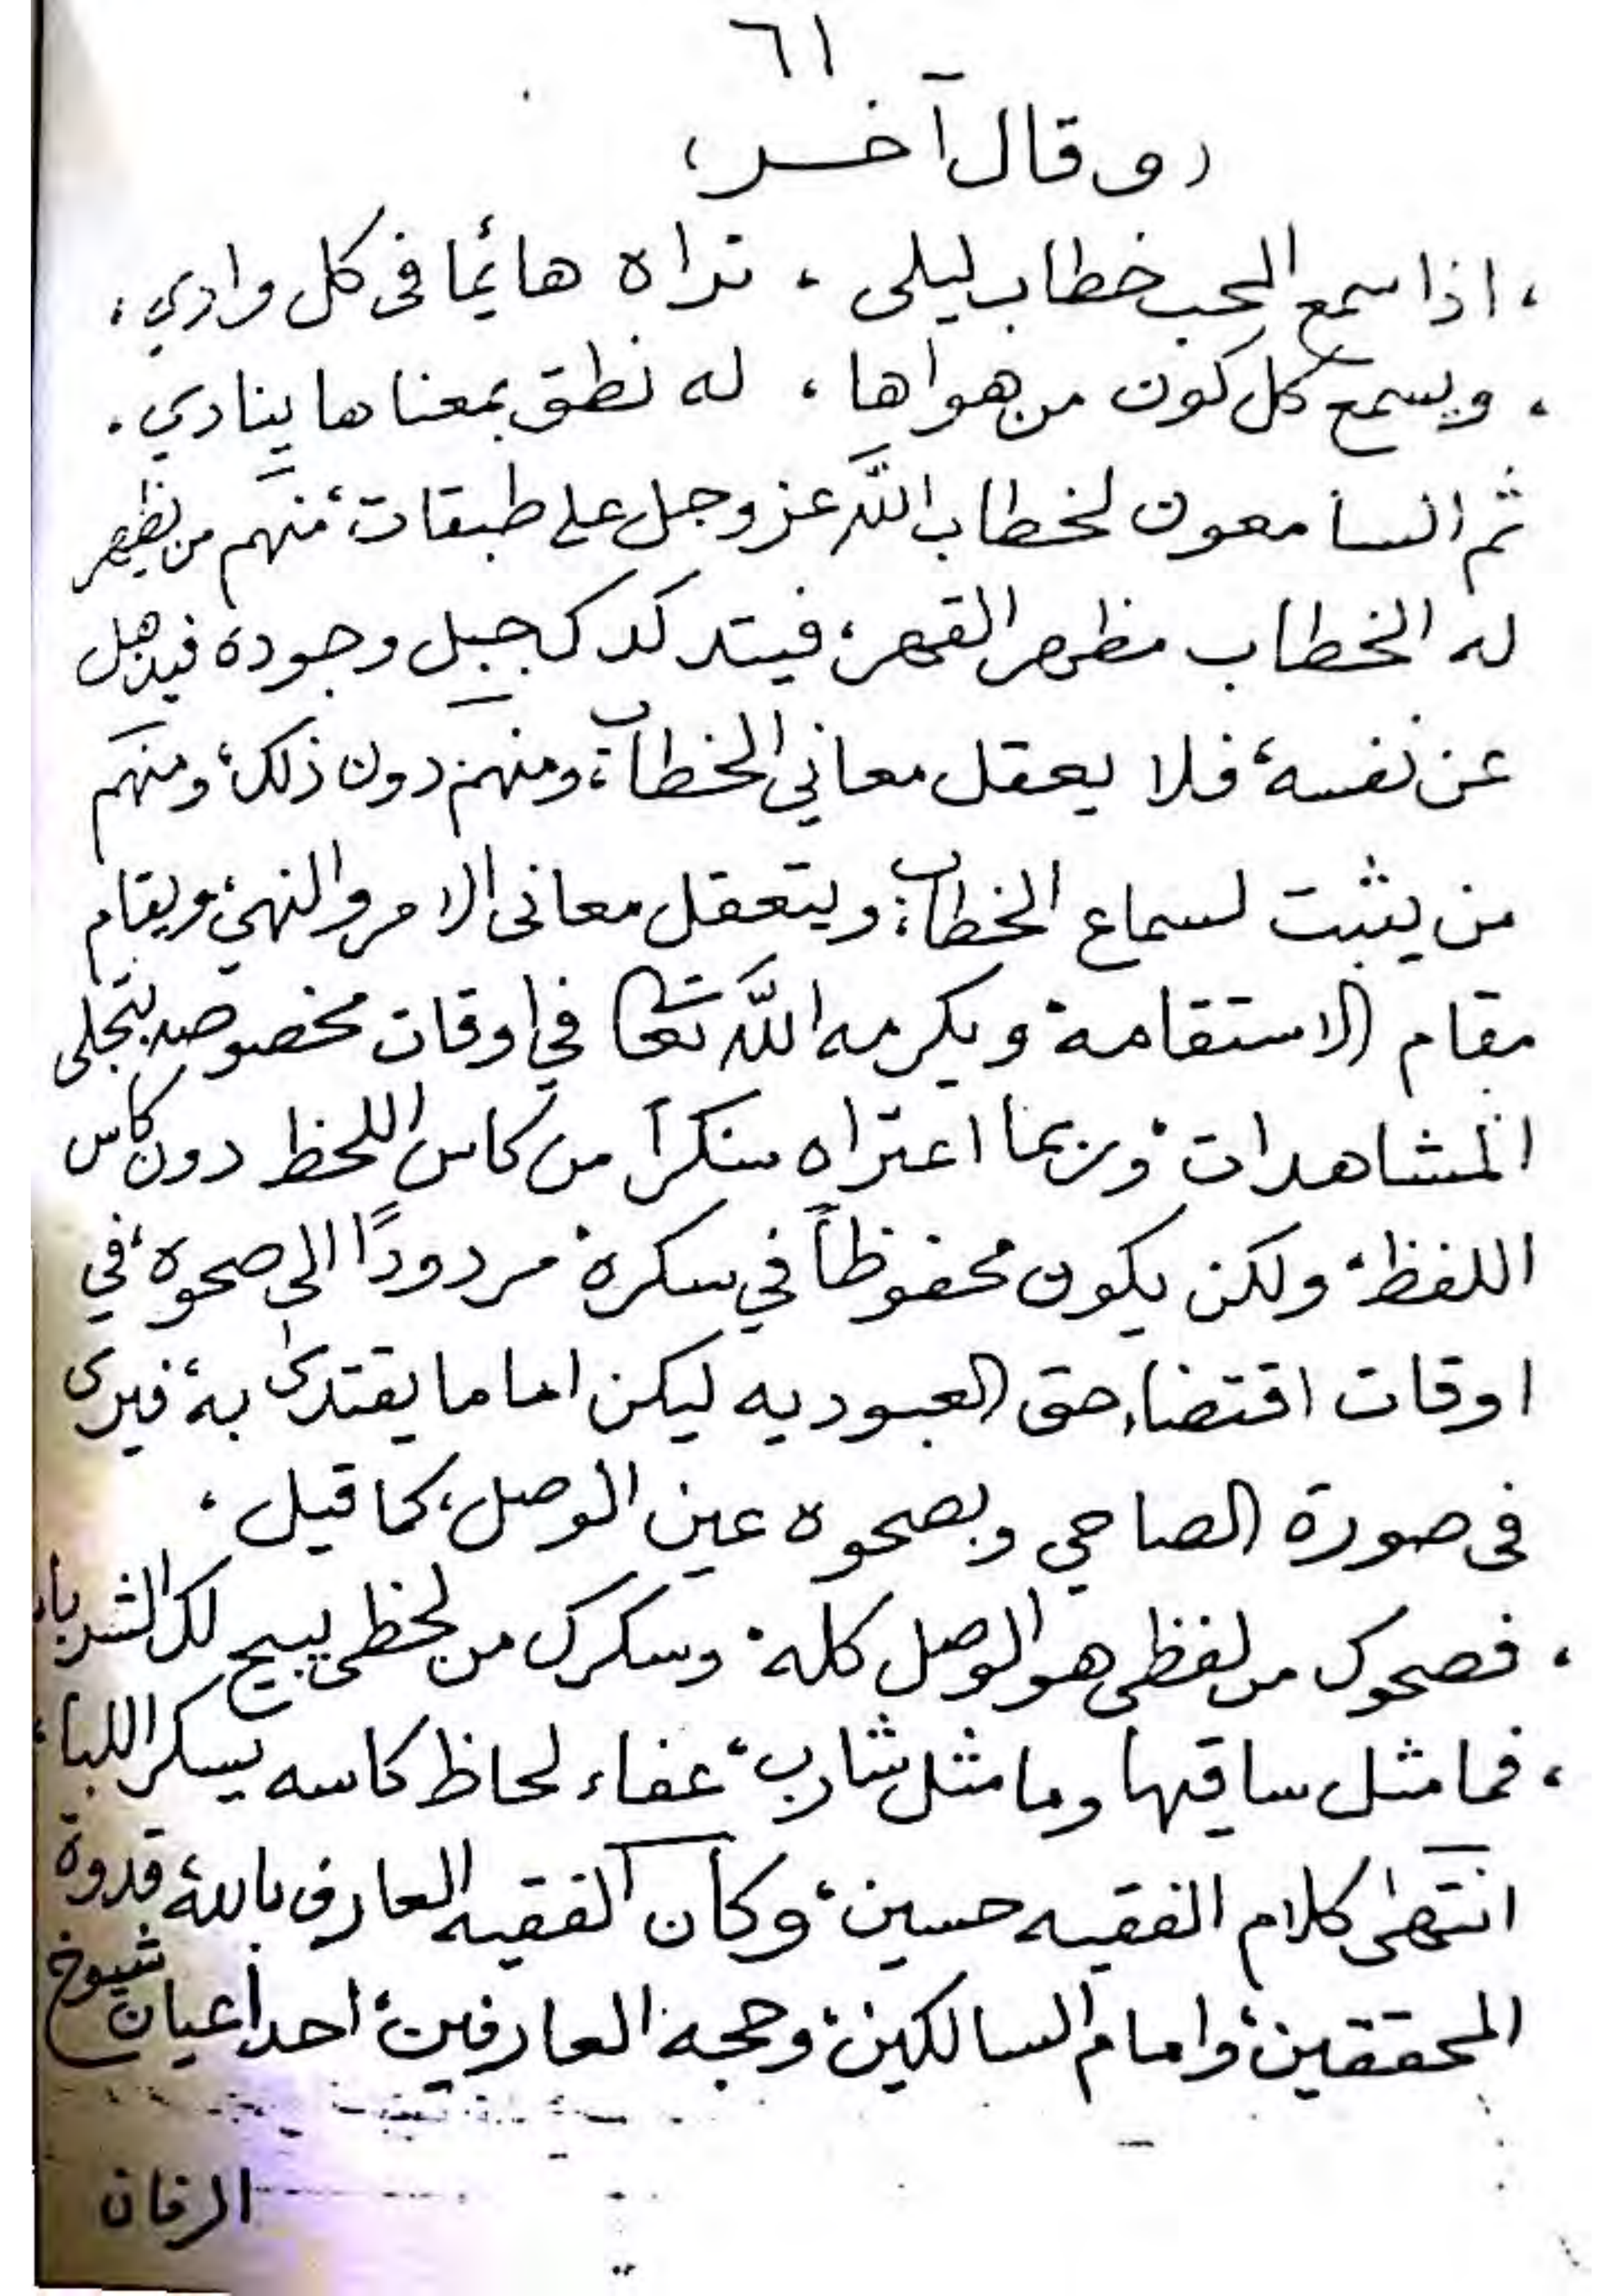 ٦١
(وقال آخر)
، اذا سمع المحب خطاب ليلى ، تراه هائما فى كل وادي ،
، ويسمع كل كون من هواها ، له نطق بمعناها ينادي .
ثم السامعون لخطاب اللَّه عز وجل على طبقات، منهم من يظهر
له الخطاب مظهر القهر، فيتدكدك جبل وجوده فيذهل
عن نفسه، فلا يعقل معاني الخطاب، ومنهم دون ذلك، ومنهم
من يثبت لسماع الخطاب، ويتعقل معانى الامر والنهي، ويقام
مقام الاستقامة ويكرمه اللَّه تعا في اوقات مخصوصه بتجلى
المشاهدات، وربما اعتراه سكراً من كاس اللحظ دون كاس
اللفظ، ولكن يكون محفوظاً في سكره، مردودًا الى صحوه، في
اوقات اقتضاء حق العبوديه ليكن اماما يقتدى به، فيرى
فى صورة الصاحي وبصحوه عين الوصل، كما قيل ،
، فصحوك من لفظى هو الوصل كله، وسكرك من لحظى يبيح لك الشربا،
، فما مثل ساقيها وما مثل شارب، عفاء لحاظ كاسه يسكر اللبا،
انتهى كلام الفقيه حسين، وكان الفقيه العارف بالله، قدوة
المحققين، وامام السالكين، وحجه العارفين، احد اعيان شيوخ